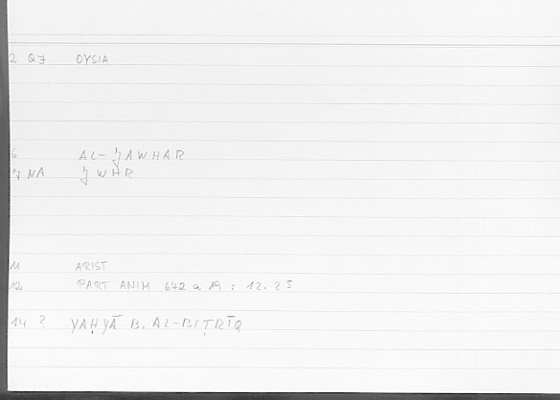 2 Q7 OYSIA
6 AL-JAWHAR
7 NA JWHR
11 ARIST
12 PART ANIM 642 a 19 : 12.23
14 ? YAḤYĀ B. AL-BIṬRĪQ